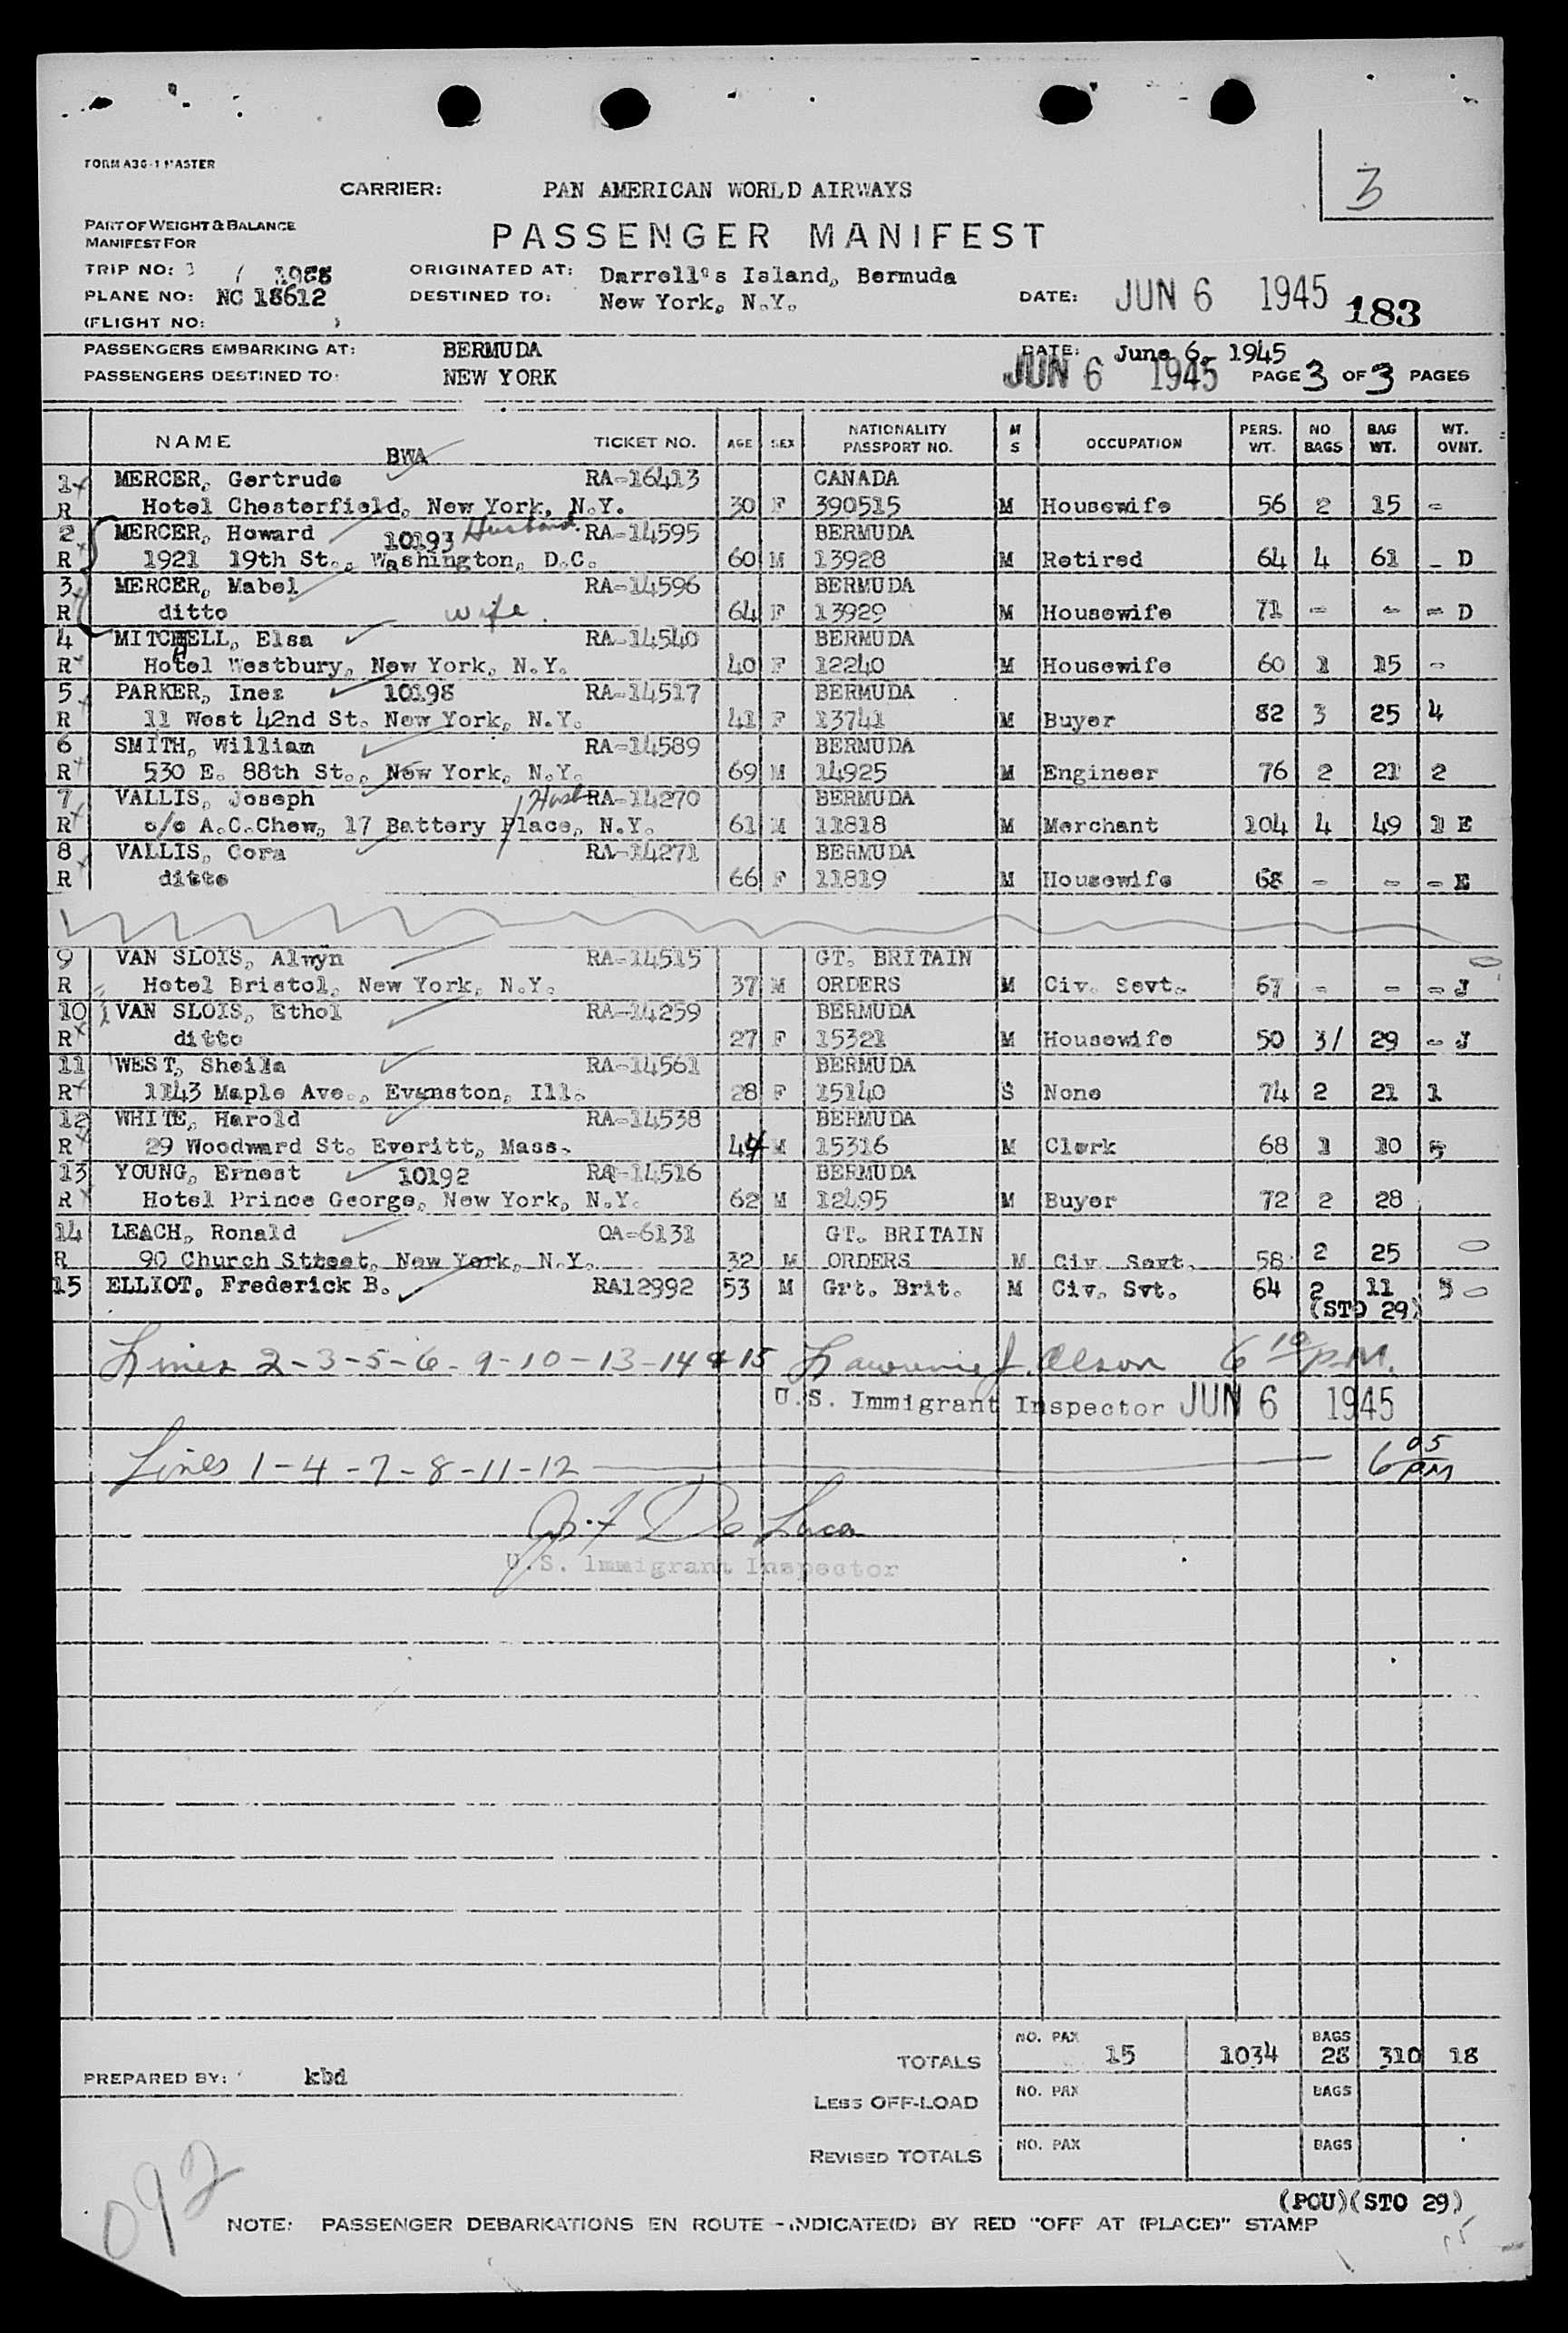 FORM A36-1 MASTER
3
CARRIER: PAN AMERICAN WORLD AIRWAYS
PART OF WEIGHT & BALANCE
MANIFEST FOR
PASSENGER MANIFEST
TRIP NO: 1988 ORIGINATED AT: Darrell's Island, Bermuda
PLANE NO: NC 18612 DESTINED TO: New York, N.Y. DATE: JUN 6 1945 183
(FLIGHT NO: )
PASSENGERS EMBARKING AT: BERMUDA DATE: June 6, 1945
PASSENGERS DESTINED TO: NEW YORK JUN 6 1945 PAGE 3 OF 3 PAGES
NAME TICKET NO. AGE SEX NATIONALITY PASSPORT NO. M S OCCUPATION PERS. WT. NO BAGS BAG WT. WT. OVNT.
BWA
1 MERCER, Gertrude RA-16413 CANADA
R Hotel Chesterfield, New York, N.Y. 30 F 390515 M Housewife 56 2 15 -
2 MERCER, Howard 10193 Husband. RA-14595 BERMUDA
R 1921 19th St., Washington, D.C. 60 M 13928 M Retired 64 4 61 - D
3 MERCER, Mabel RA-14596 BERMUDA
R ditto wife. 64 F 13929 M Housewife 71 - - - D
4 MITCHELL, Elsa RA-14540 BERMUDA
R Hotel Westbury, New York, N.Y. 40 F 12240 M Housewife 60 1 15 -
5 PARKER, Inez 10198 RA-14517 BERMUDA
R 11 West 42nd St. New York, N.Y. 41 F 13741 M Buyer 82 3 25 4
6 SMITH, William RA-14589 BERMUDA
R 530 E. 88th St., New York, N.Y. 69 M 14925 M Engineer 76 2 21 2
7 VALLIS, Joseph Husb RA-14270 BERMUDA
R c/o A.C.Chew, 17 Battery Place, N.Y. 61 M 11818 M Merchant 104 4 49 1 E
8 VALLIS, Cora RA-14271 BERMUDA
R ditto 66 F 11819 M Housewife 68 - - - E
9 VAN SLOIS, Alwyn RA-14515 GT. BRITAIN
R Hotel Bristol, New York, N.Y. 37 M ORDERS M Civ. Sevt. 67 - - - J
10 VAN SLOIS, Ethol RA-14259 BERMUDA
R ditto 27 F 15321 M Housewife 50 3/ 29 - J
11 WEST, Sheila RA-14561 BERMUDA
R 1143 Maple Ave., Evanston, Ill. 28 F 15140 S None 74 2 21 1
12 WHITE, Harold RA-14538 BERMUDA
R 29 Woodward St. Everitt, Mass. 44 M 15316 M Clerk 68 1 10 5
13 YOUNG, Ernest 10192 RA-14516 BERMUDA
R Hotel Prince George, New York, N.Y. 62 M 12495 M Buyer 72 2 28
14 LEACH, Ronald OA-6131 GT. BRITAIN
R 90 Church Street, New York, N.Y. 32 M ORDERS M Civ. Sevt. 58 2 25
15 ELLIOT, Frederick B. RA12992 53 M Grt. Brit. M Civ. Svt. 64 2 11 5
(STO 29)
Lines 2-3-5-6-9-10-13-14 & 15 Lawrence J. Olson 6 10 P.M.
U.S. Immigrant Inspector JUN 6 1945
Lines 1-4-7-8-11-12 6 05 PM
De Luca
U.S. Immigrant Inspector
TOTALS NO. PAX 15 1034 BAGS 28 310 18
PREPARED BY: kbd
LESS OFF-LOAD NO. PAX BAGS
REVISED TOTALS NO. PAX BAGS
(POU)(STO 29)
092
NOTE: PASSENGER DEBARKATIONS EN ROUTE - INDICATE(D) BY RED "OFF AT (PLACE)" STAMP